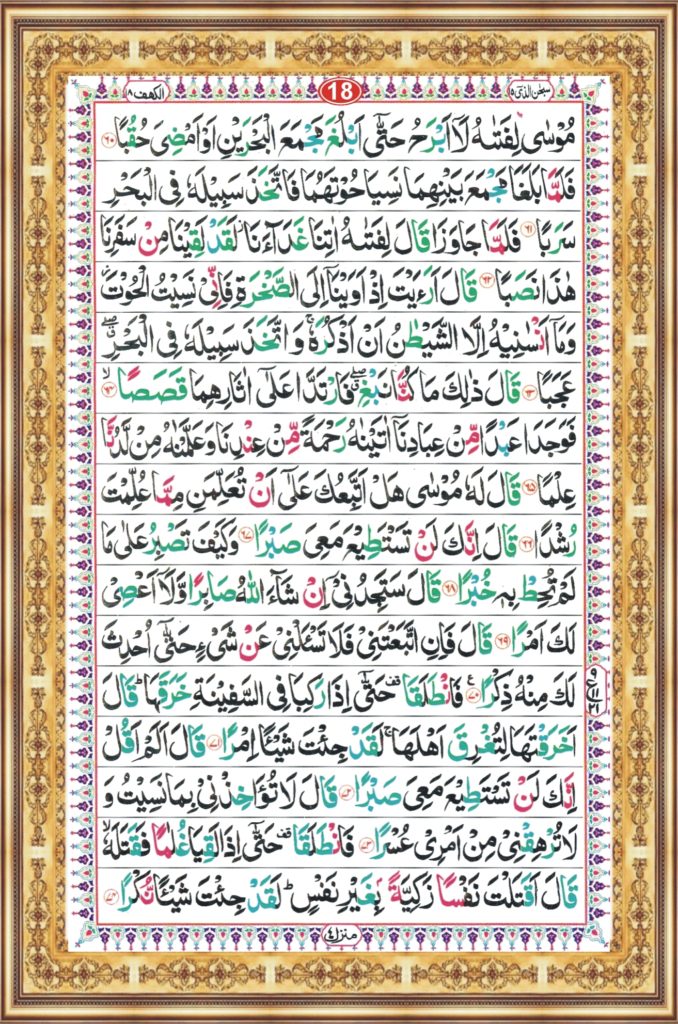 سبحٰن الذی ۱۵
18
الکهف ۱۸
مُوْسٰی لِفَتٰىهُ لَاۤ اَبْرَحُ حَتّٰۤی اَبْلُغَ مَجْمَعَ الْبَحْرَیْنِ اَوْ اَمْضِیَ حُقُبًا ۶۰
فَلَمَّا بَلَغَا مَجْمَعَ بَیْنِهِمَا نَسِیَا حُوْتَهُمَا فَاتَّخَذَ سَبِیْلَهٗ فِی الْبَحْرِ
سَرَبًا ۶۱ فَلَمَّا جَاوَزَا قَالَ لِفَتٰىهُ اٰتِنَا غَدَآءَنَا ؗ لَقَدْ لَقِیْنَا مِنْ سَفَرِنَا
هٰذَا نَصَبًا ۶۲ قَالَ اَرَءَیْتَ اِذْ اَوَیْنَاۤ اِلَی الصَّخْرَةِ فَاِنِّیْ نَسِیْتُ الْحُوْتَ ؗ
وَمَاۤ اَنْسٰىنِیْهُ اِلَّا الشَّیْطٰنُ اَنْ اَذْكُرَهٗ ۚ وَ اتَّخَذَ سَبِیْلَهٗ فِی الْبَحْرِ ۖۗ
عَجَبًا ۶۳ قَالَ ذٰلِكَ مَا كُنَّا نَبْغِ ۖۗ فَارْتَدَّا عَلٰۤی اٰثَارِهِمَا قَصَصًا ۙ ۶۴
فَوَجَدَا عَبْدًا مِّنْ عِبَادِنَاۤ اٰتَیْنٰهُ رَحْمَةً مِّنْ عِنْدِنَا وَعَلَّمْنٰهُ مِنْ لَّدُنَّا
عِلْمًا ۶۵ قَالَ لَهٗ مُوْسٰی هَلْ اَتَّبِعُكَ عَلٰۤی اَنْ تُعَلِّمَنِ مِمَّا عُلِّمْتَ
رُشْدًا ۶۶ قَالَ اِنَّكَ لَنْ تَسْتَطِیْعَ مَعِیَ صَبْرًا ۶۷ وَكَیْفَ تَصْبِرُ عَلٰی مَا
لَمْ تُحِطْ بِهٖ خُبْرًا ۶۸ قَالَ سَتَجِدُنِیْۤ اِنْ شَآءَ اللّٰهُ صَابِرًا وَّلَاۤ اَعْصِیْ
لَكَ اَمْرًا ۶۹ قَالَ فَاِنِ اتَّبَعْتَنِیْ فَلَا تَسْـَٔلْنِیْ عَنْ شَیْءٍ حَتّٰۤی اُحْدِثَ
لَكَ مِنْهُ ذِكْرًا ۷۰ فَانْطَلَقَا ۥ حَتّٰۤی اِذَا رَكِبَا فِی السَّفِیْنَةِ خَرَقَهَا ؕ قَالَ
اَخَرَقْتَهَا لِتُغْرِقَ اَهْلَهَا ۚ لَقَدْ جِئْتَ شَیْـًٔا اِمْرًا ۷۱ قَالَ اَلَمْ اَقُلْ
اِنَّكَ لَنْ تَسْتَطِیْعَ مَعِیَ صَبْرًا ۷۲ قَالَ لَا تُؤَاخِذْنِیْ بِمَا نَسِیْتُ وَ
لَا تُرْهِقْنِیْ مِنْ اَمْرِیْ عُسْرًا ۷۳ فَانْطَلَقَا ۥ حَتّٰۤی اِذَا لَقِیَا غُلٰمًا فَقَتَلَهٗ ۙ
قَالَ اَقَتَلْتَ نَفْسًا زَكِیَّةًۢ بِغَیْرِ نَفْسٍ ؕ لَقَدْ جِئْتَ شَیْـًٔا نُّكْرًا ۷۴
منزل ۴